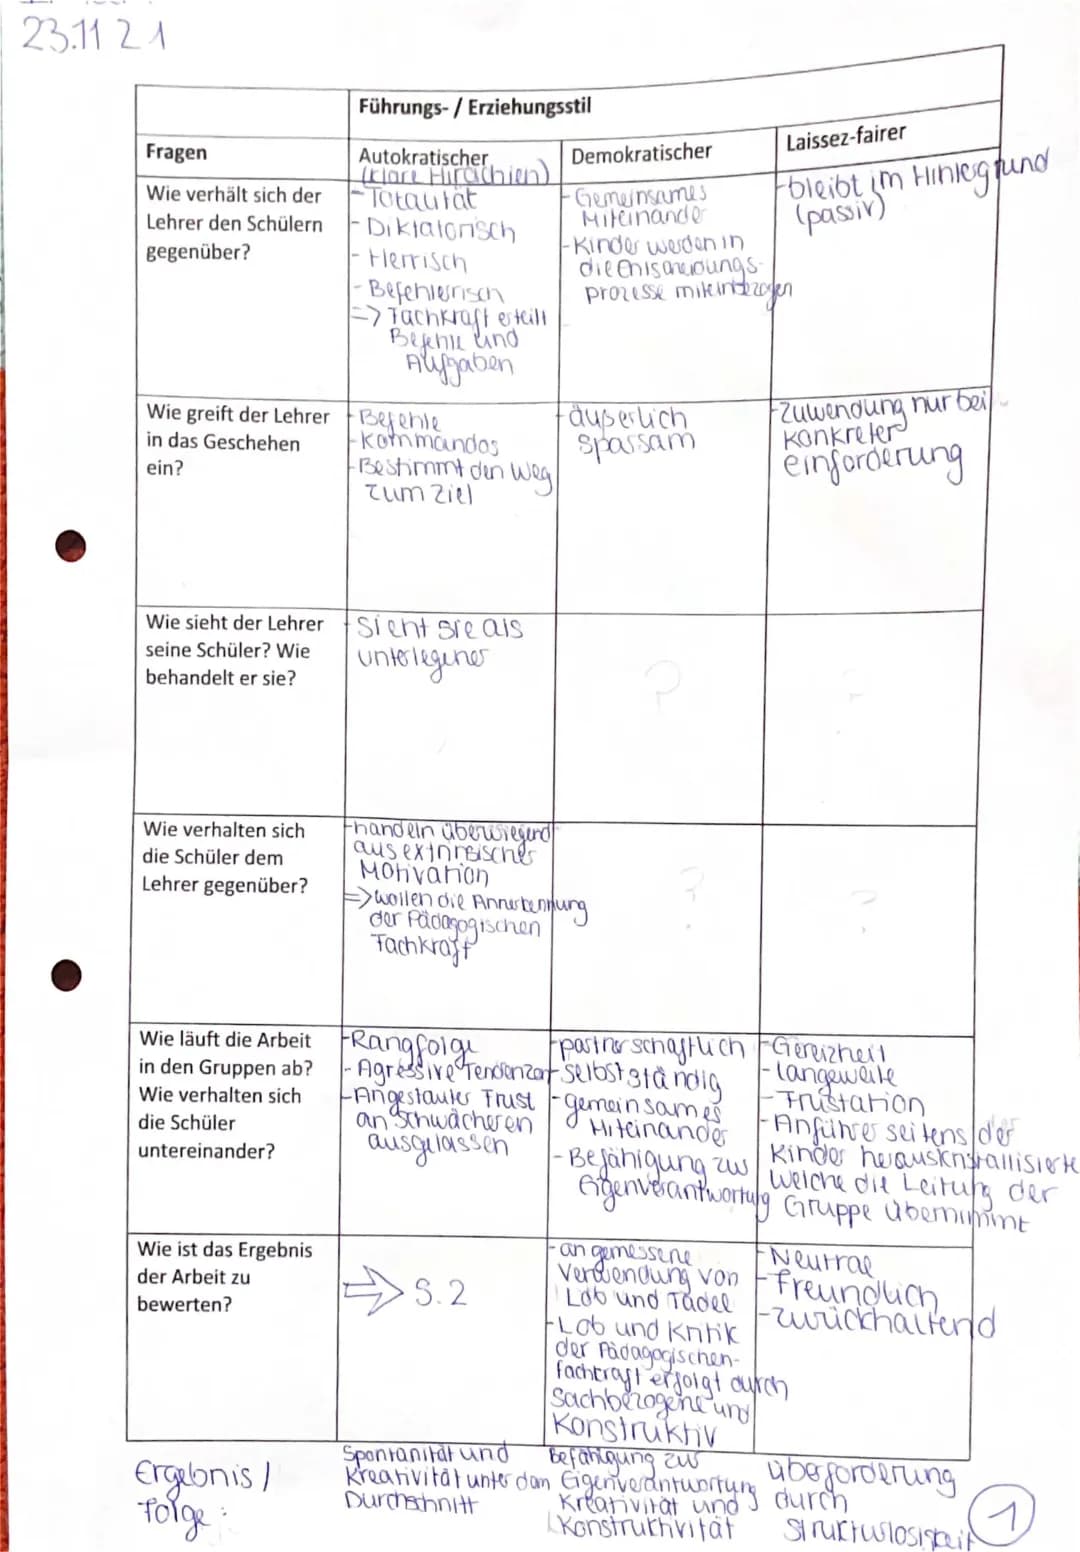 23.11 21
Führungs- / Erziehungsstil
Fragen
Autokratischer
(klare Hirachien)
Demokratischer
Laissez-fairer
Wie verhält sich der
Lehrer den Schülern
gegenüber?
- Totalität
- Diktatorisch
- Herrisch
- Befehlerrisch
=> Fachkraft erteilt
Befehle und
Aufgaben
- Gemeinsames
Miteinander
- Kinder werden in
die Entscheidungs-
prozesse miteinbezogen
- bleibt im Hintergrund
(passiv)
Wie greift der Lehrer
in das Geschehen
ein?
- Befehle
- Kommandos
- Bestimmt den Weg
zum Ziel
- äuserlich
spassam
- Zuwendung nur bei
konkreter
einforderung
Wie sieht der Lehrer
seine Schüler? Wie
behandelt er sie?
- sieht sie als
unterlegener
?
?
Wie verhalten sich
die Schüler dem
Lehrer gegenüber?
- handeln überwiegend
aus extrinsischer
Motivation
=> wollen die Annerkennung
der Pädagogischen
Fachkraft
?
?
Wie läuft die Arbeit
in den Gruppen ab?
Wie verhalten sich
die Schüler
untereinander?
- Rangfolge
- Agressive Tendenzen
- Angestauter Frust
an Schwächeren
ausgelassen
- partnerschaftlich
- selbstständig
- gemeinsames
Miteinander
- Befähigung zur
Eigenverantwortung
- Gereiztheit
- langeweile
- Frustration
- Anführer seitens der
Kinder herauskristallisierte
welche die Leitung der
Gruppe übernimmt
Wie ist das Ergebnis
der Arbeit zu
bewerten?
=> S.2
- angemessene
Verwendung von
Lob und Tadel
- Lob und Kritik
der Pädagogischen-
fachkraft erfolgt durch
Sachbezogene und
Konstruktiv
- Neutral
- freundlich
- zurückhaltend
Ergebnis /
Folge:
Spontanität und
Kreativität unter dem
Durchschnitt
Befähigung zur
Eigenverantwortung
Kreativität und
Konstruktivität
überforderung
durch
Strukturlosigkeit
1